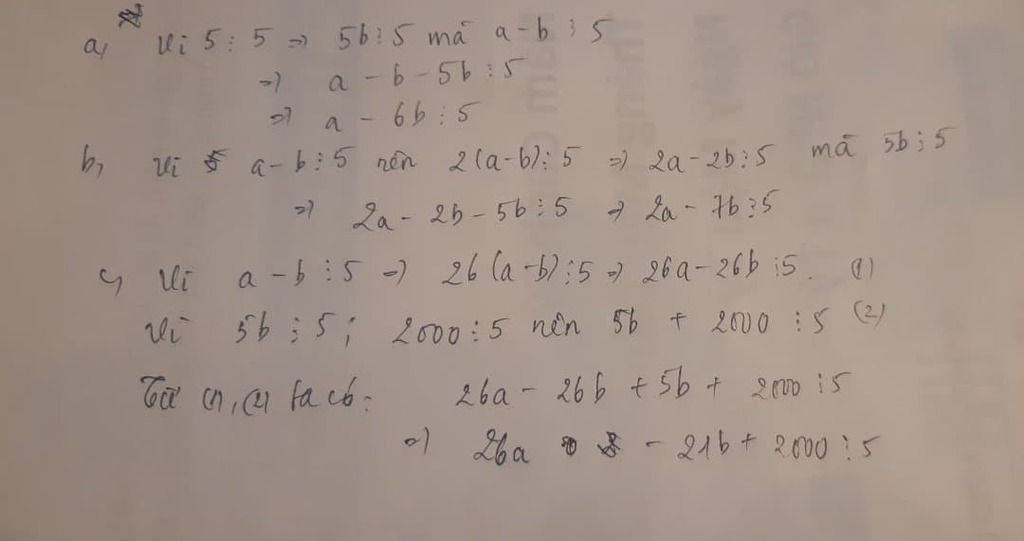 a, Vì 5 ⋮ 5 => 5b ⋮ 5 mã a - b ⋮ 5
=> a - b - 5b ⋮ 5
=> a - 6b ⋮ 5
b, Vì a - b ⋮ 5 nên 2(a-b) ⋮ 5 => 2a - 2b ⋮ 5 mã 5b ⋮ 5
=> 2a - 2b - 5b ⋮ 5 => 2a - 7b ⋮ 5
c, Vì a - b ⋮ 5 => 26(a-b) ⋮ 5 => 26a - 26b ⋮ 5. (1)
Vì 5b ⋮ 5; 2000 ⋮ 5 nên 5b + 2000 ⋮ 5 (2)
Từ (1), (2) ta có: 26a - 26b + 5b + 2000 ⋮ 5
=> 26a - 21b + 2000 ⋮ 5